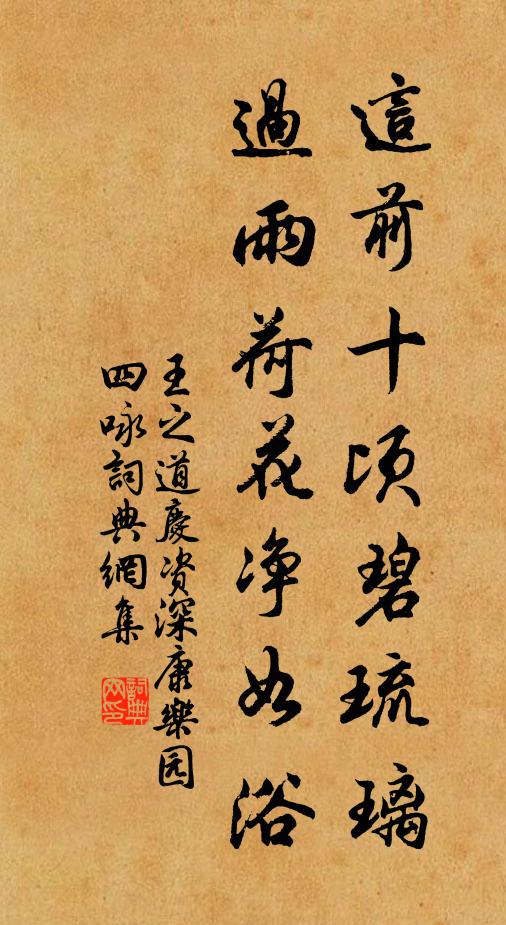 這前十頃碧琉璃
過雨荷花净如浴
王之道慶资深康樂园
四咏詞典網集
詞典
网印